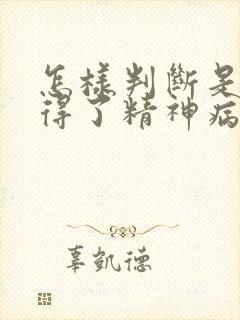 怎樣判斷是
得了精神病
辜凱德